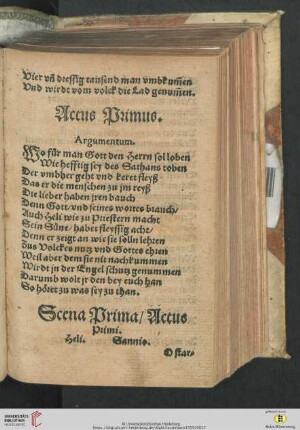 Vier vñ dreissig tausend man vmbkum̃en
Vnd wirdt vom volck die Lad genum̃en.
Actus Primus.
Argumentum.
Wo für man Gott den Herrn sol loben
Wie hefftig sey des Sathans toben
Der vmbher geht vnd keret fleyß
Das er die menschen zu jm reyß
Die lieber haben jren bauch
Denn Gott/ vnd seines wortes brauch/
Auch Heli wie zu Priestern macht
Sein Süne/ habet fleyssig acht/
Denn er zeigt an wie sie solln lehren
Zus Volckes nutz vnd Gottes ehren
Weil aber dem sie nit nachkummen
Wirdt jn der Engel schutz genummen
Darumb wolt jr den bey euch han
So höret zu was sey zu than.
Scena Prima/ Actus
Primi.
Heli. Sannio.
O star-